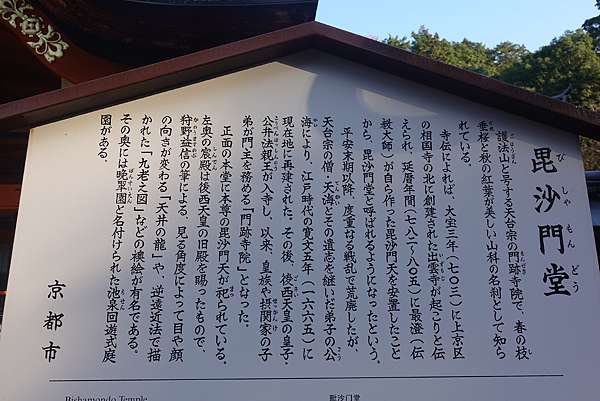 毘沙門堂
びしゃもんどう
護法山と号する天台宗の門跡寺院で、春の枝
垂桜と秋の紅葉が美しい山科の名刹として知ら
れている。
寺伝によれば、大宝三年（七〇三）に上京区
の相国寺の北に創建された出雲寺が起こりと伝
えられ、延暦年間（七八二‐八〇五）に最澄（伝
教大師）が自ら作った毘沙門天を安置したこと
から、毘沙門堂と呼ばれるようになったという。
平安末期以降、度重なる戦乱で荒廃したが、
天台宗の僧・天海とその遺志を継いだ弟子の公
海により、江戸時代の寛文五年（一六六五）に
現在地に再建された。その後、後西天皇の皇子・
公弁法親王が入寺し、以来、皇族や摂関家の子
弟が門主を務める「門跡寺院」となった。
正面の本堂に本尊の毘沙門天が祀られている。
左奥の宸殿は後西天皇の旧殿を賜ったもので、
狩野益信の筆による、見る角度によって目や顔
の向きが変わる「天井の龍」や、逆遠近法で描
かれた「九老之図」などの襖絵が有名である。
その奥には晩翠園と名付けられた池泉回遊式庭
園がある。
京都市
Bishamondo Temple
毗沙门堂